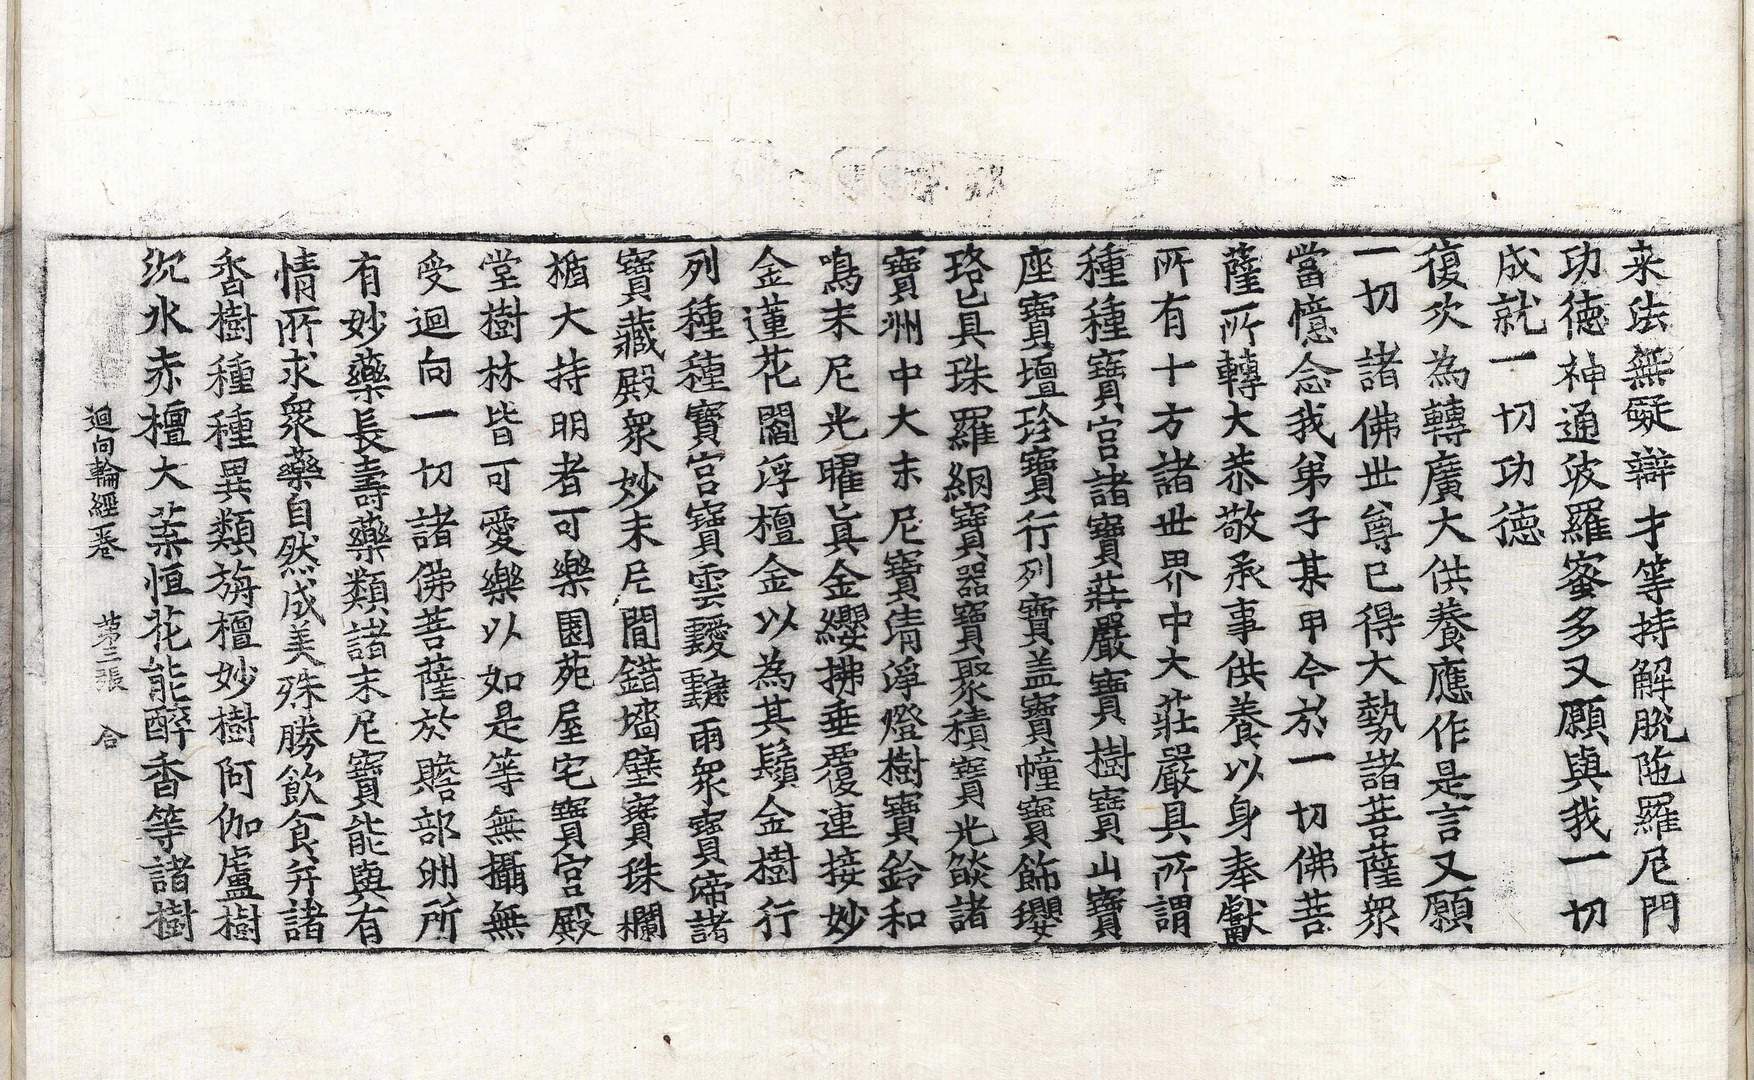 来法無礙辯才等持解脫陁羅尼門
功德神通波羅蜜多又願與我一切
成就一切功德
復次為轉廣大供養應作是言又願
一切諸佛世尊已得大勢諸菩薩眾
當憶念我弟子某甲今於一切佛菩
薩所轉大恭敬承事供養以身奉獻
所有十方諸世界中大莊嚴具所謂
種種寶宮諸寶莊嚴寶樹寶山寶
座寶壇珍寶行列寶盖寶幢寶飾瓔
珞是真珠羅網寶器寶聚積寶光餤諸
寶洲中大末尼寶清淨燈樹寶鈴和
鳴末尼光曜真金纓拂垂覆連接妙
金蓮花閻浮檀金以為其鬚金樹行
列種種寶宮寶雲靉靆雨眾寶帝諸
寶藏殿眾妙末尼間錯墻壁寶珠欄
楯大持明者可樂園苑屋宅寶宮殿
堂樹林皆可愛樂以如是等無攝無
受迴向一切諸佛菩薩於贍部洲所
有妙藥長壽藥類諸末尼寶能與有
情所求眾藥自然成美殊勝飲食并諸
香樹種種異類旃檀妙樹阿伽盧樹
沉水赤檀大葉恒花能醉香等諸樹
迴向輪經一卷 第三張 合